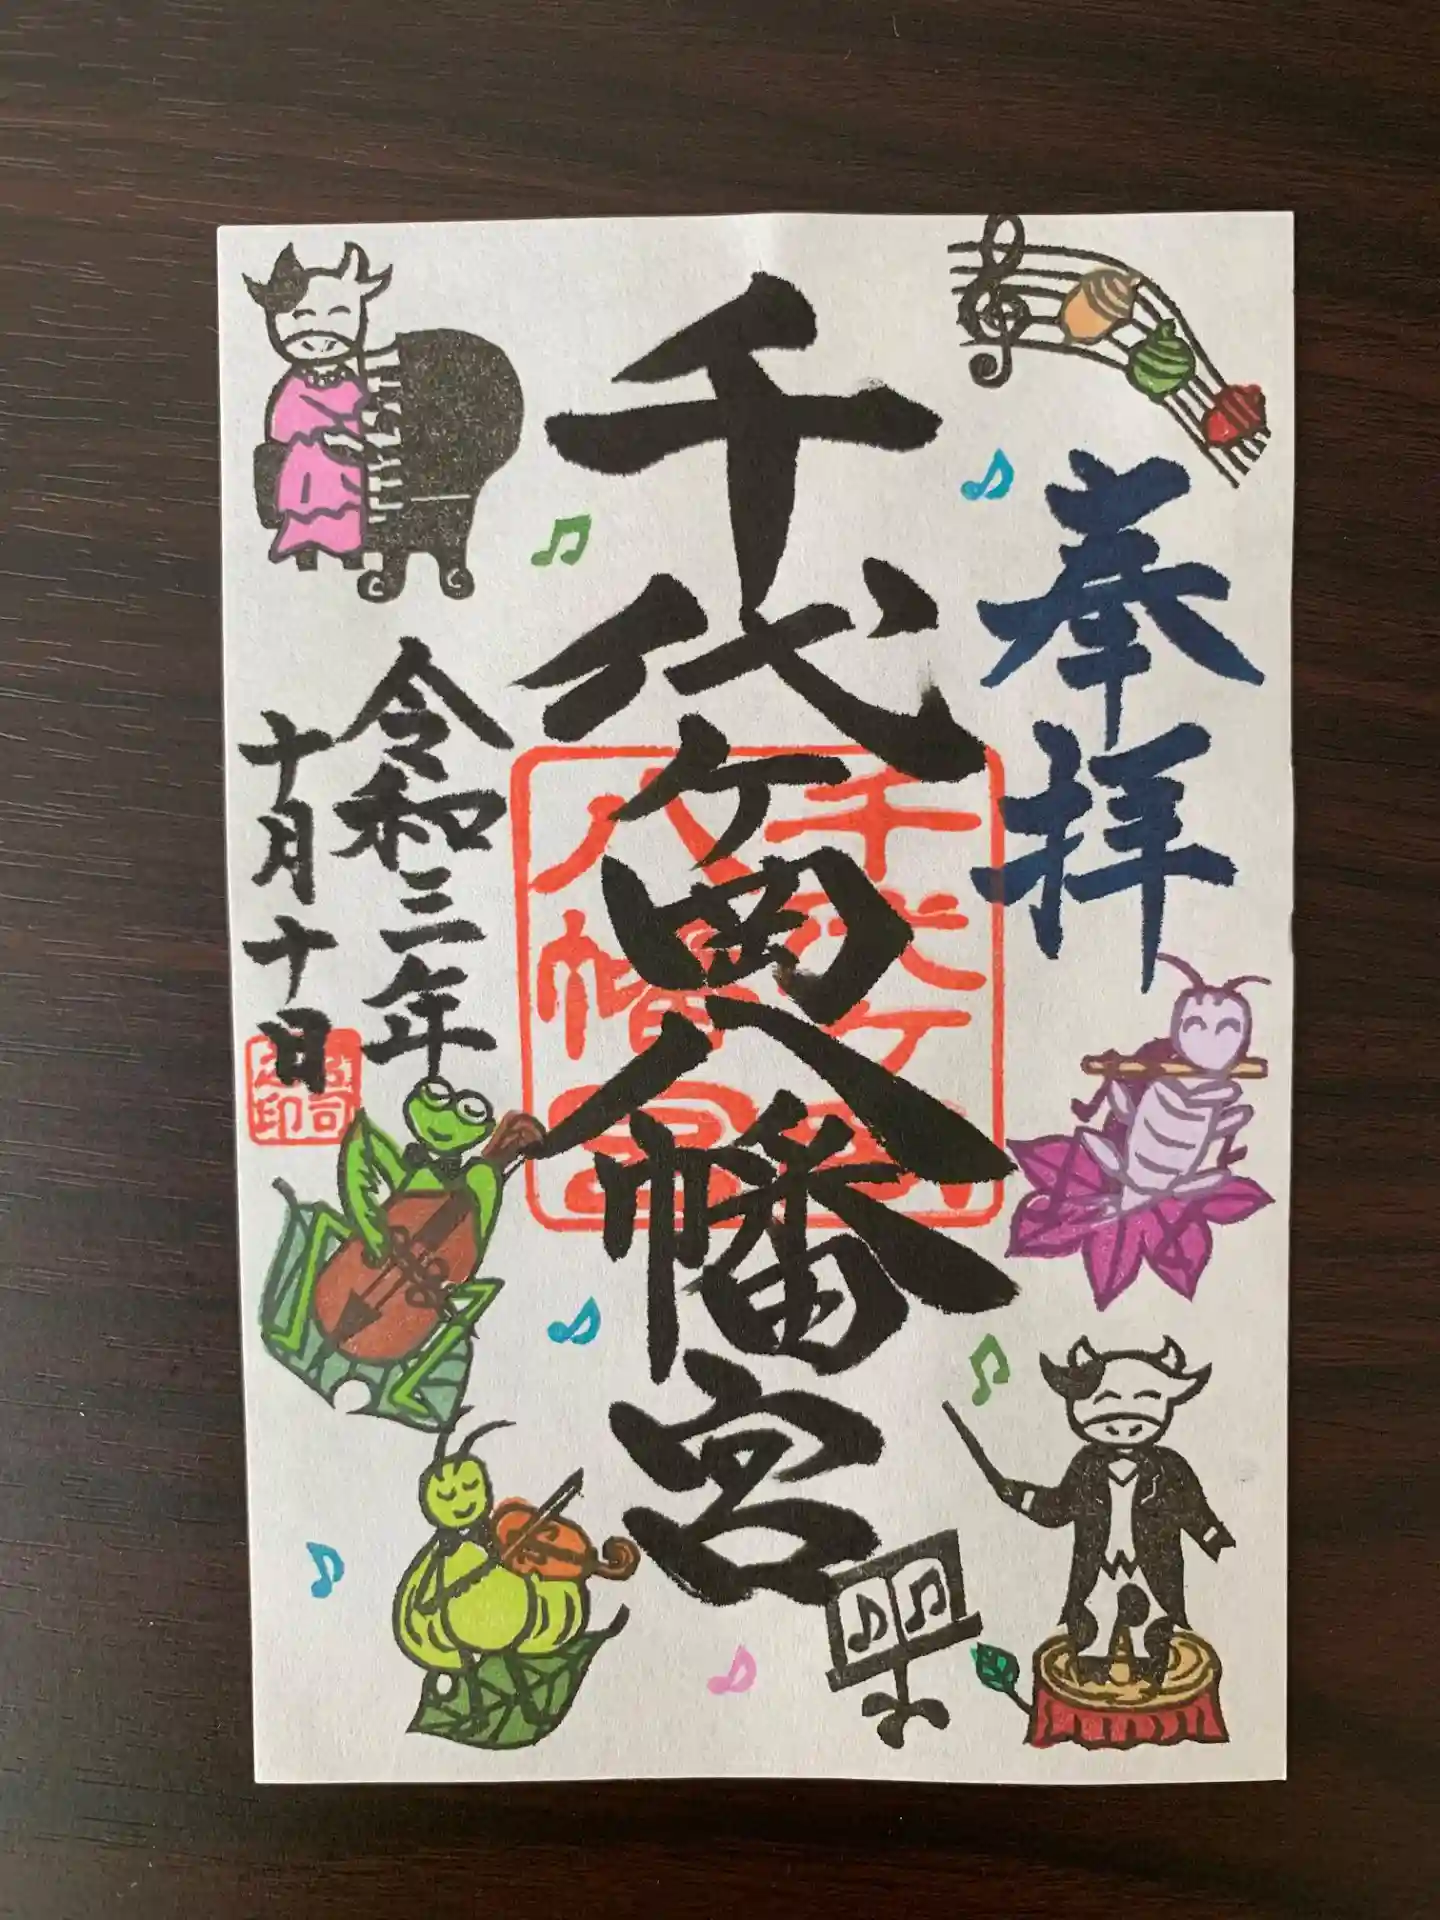 奉拝
千代ケ岡八幡宮
千代ケ岡
八幡宮
令和三年
十月十日
宮司
之印